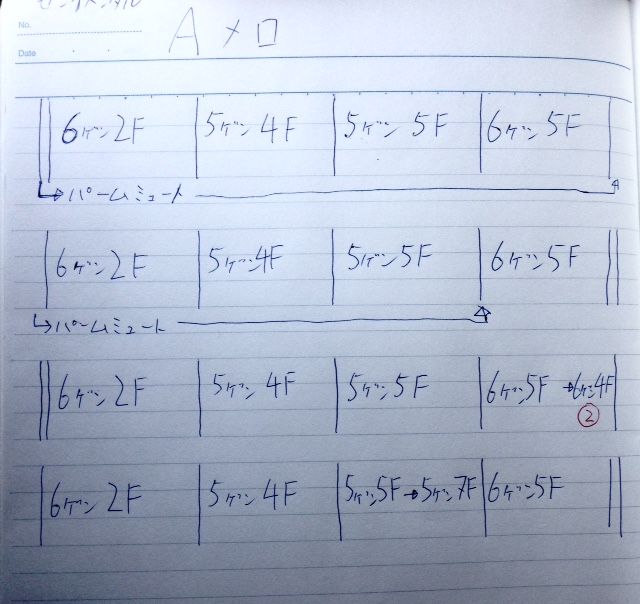 No.
Aメロ
Date
6ゲン2F 5ゲン4F 5ゲン5F 6ゲン5F
→パームミュート
6ゲン2F 5ゲン4F 5ゲン5F 6ゲン5F
→パームミュート
6ゲン2F 5ゲン4F 5ゲン5F 6ゲン5F→6ゲン4F
②
6ゲン2F 5ゲン4F 5ゲン5F→5ゲン7F 6ゲン5F